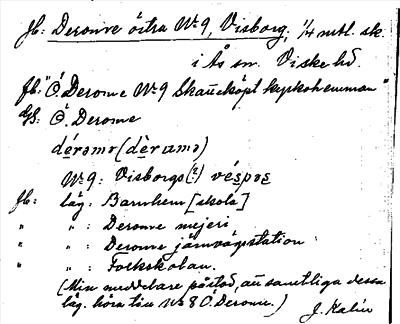 Jb: Derome östra No 9, Visborg, 1/4 mtl. sk.
i Ås sn. Viske hd.
Jb. "Ö. Derome No 9 Skatteköpt kyrkohemman"
dS: Ö. Derome
dérəmə (dèramə)
No 9: Visborgs(?) véspəs
Jb: läg: Barnhem [skola]
" " : Derome mejeri
" " : Derome järnvägsstation
" " : Folkskolan.
(Min meddelare påstod, att samtliga dessa
läg. höra till No 8 Ö. Derome.) J. Kalén